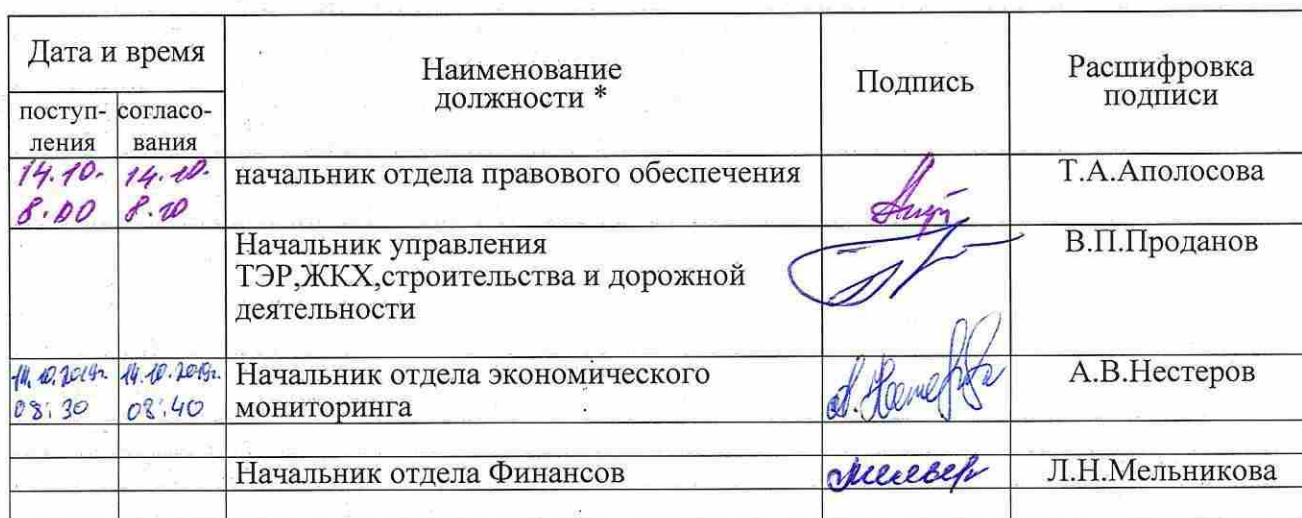 Дата и время
Наименование должности *
Подпись
Расшифровка подписи
поступ-
ления
согласо-
вания
14.10.
8.00
14.10.
8.20
начальник отдела правового обеспечения
Т.А.Аполосова
Начальник управления
ТЭР,ЖКХ,строительства и дорожной
деятельности
В.П.Проданов
14.10.2019г.
08:30
14.10.2019г.
08:40
Начальник отдела экономического
мониторинга
А.В.Нестеров
Начальник отдела Финансов
Л.Н.Мельникова